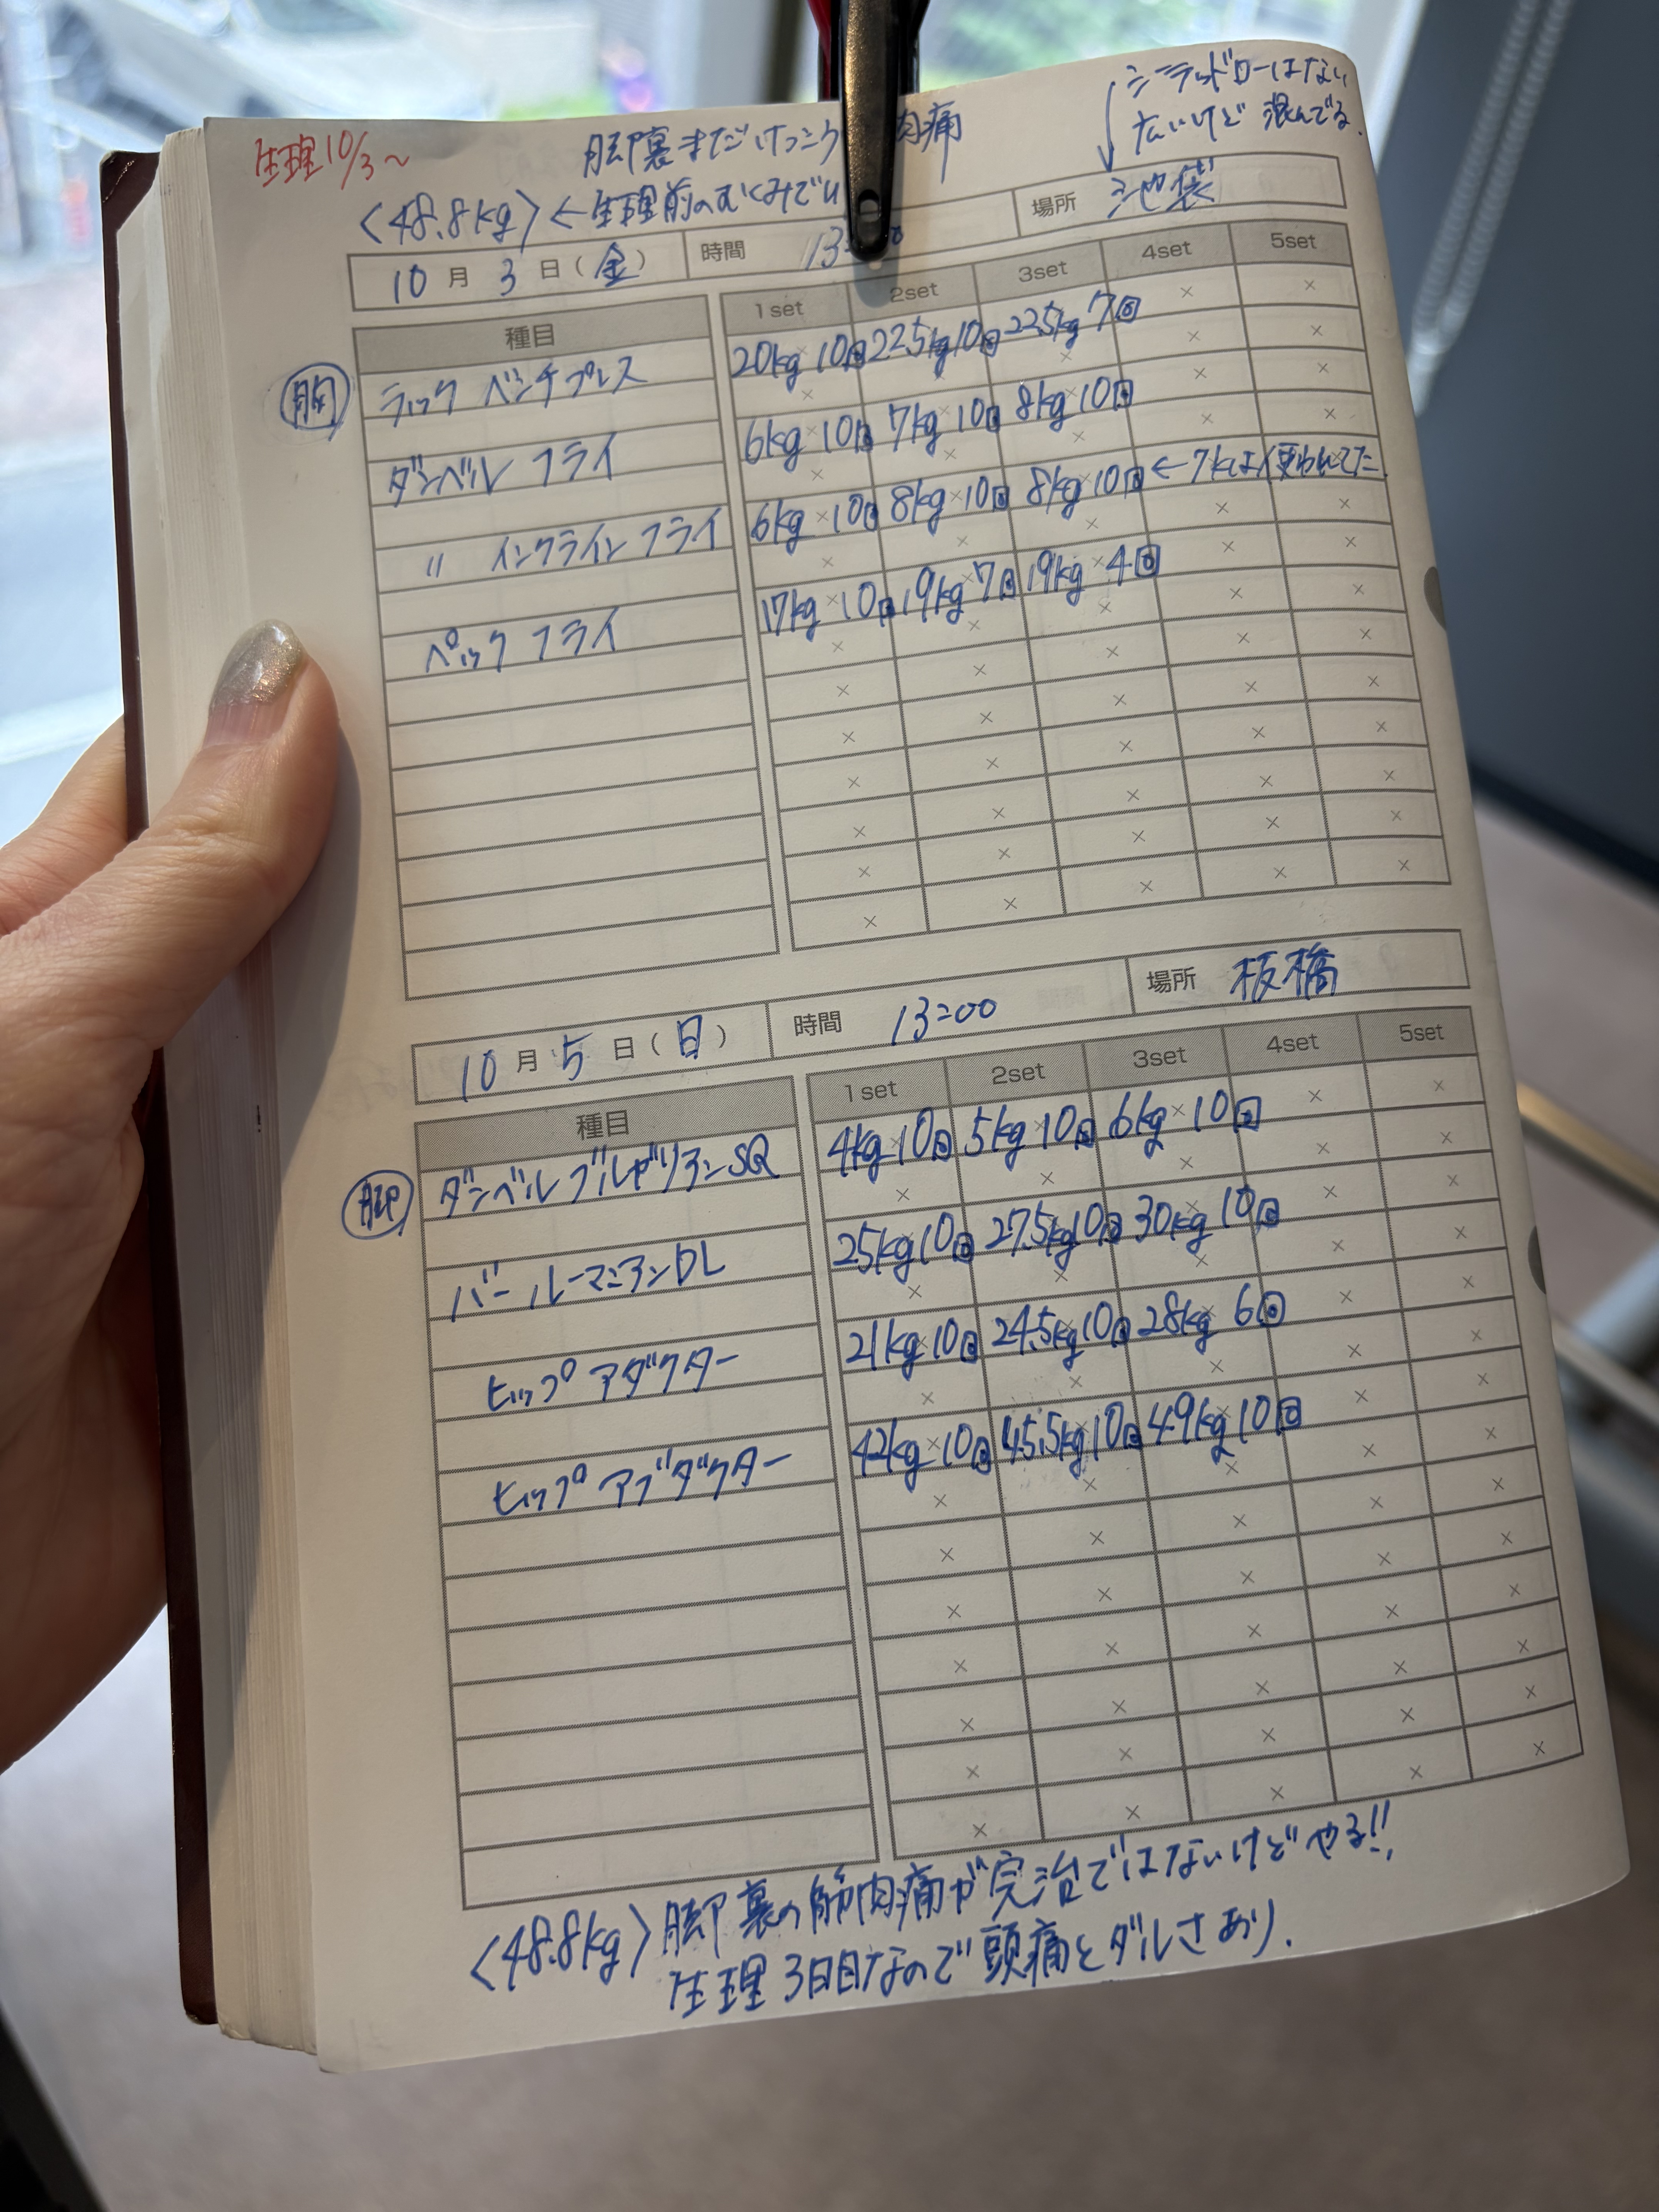 生理10/3~
脚裏まだけっこう 肉痛
シーテッドローはない
広いけど混んでる.
<48.8kg>←生理前のむくみで
10月3日(金) 時間 13: 場所 池袋
種目 1set 2set 3set 4set 5set
胸 ラック ベンチプレス 20kg×10回 22.5kg 10回 22.5kg 7回
ダンベル フライ 6kg×10回 7kg 10回 8kg×10回
〃 インクライン フライ 6kg×10回 8kg×10回 8kg×10回 ←7kgは使われてた.
ペック フライ 17kg×10回 19kg×7回 19kg×4回
10月5日(日) 時間 13:00 場所 板橋
種目 1set 2set 3set 4set 5set
脚 ダンベル ブルガリアンSQ 4kg×10回 5kg×10回 6kg×10回
バー ルーマニアンDL 25kg 10回 27.5kg 10回 30kg 10回
ヒップ アダクター 21kg×10回 24.5kg 10回 28kg 6回
ヒップ アブダクター 42kg×10回 45.5kg 10回 49kg 10回
<48.8kg> 脚裏の筋肉痛が完治ではないけどやる!!
生理3日目なので頭痛とダルさあり.